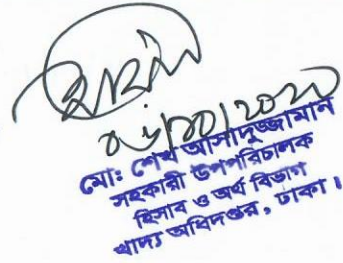 মো: শেখ আসাদুজ্জামান
সহকারী উপপরিচালক
হিসাব ও অর্থ বিভাগ
খাদ্য অধিদপ্তর, ঢাকা।